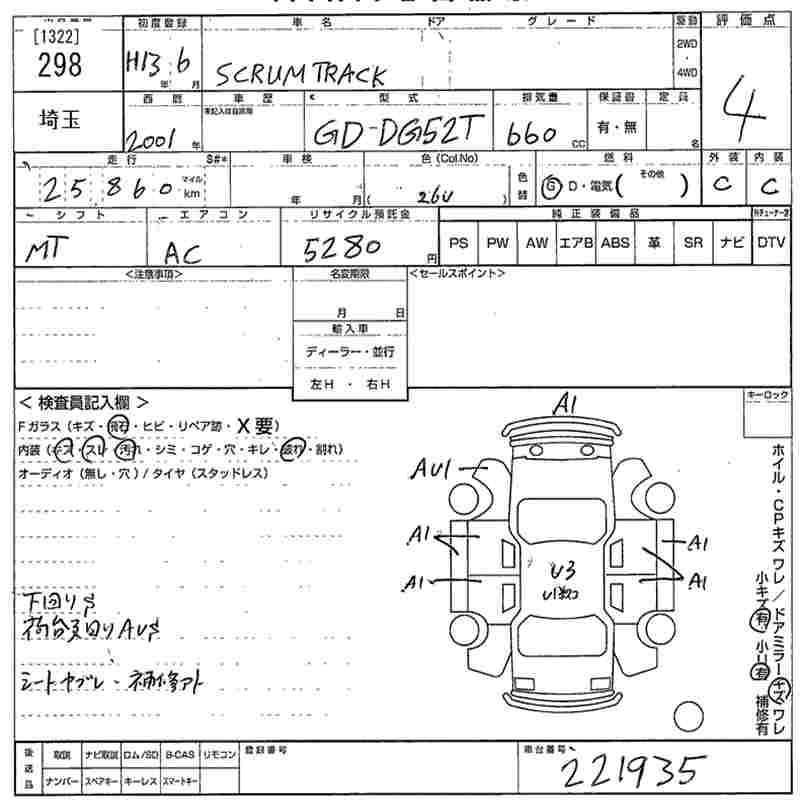 [1322]
298
初度登録
車名
ドア
グレード
駆動
評価点
H13 6
年 月
SCRUM TRACK
2WD
・
4WD
4
埼玉
西暦
車歴
型式
排気量
保証書
定員
2001 年
GD-DG52T
660 cc
有・無
名
走行
車検
色(Col.No)
燃料
外装
内装
25860
マイル
km
年 月
( 26U )
色替
Ⓖ D・電気(
その他
)
C
C
シフト
エアコン
リサイクル預託金
純正装備品
MT
AC
5280 円
PS PW AW エアB ABS 革 SR ナビ DTV
<注意事項>
名変期限
<セールスポイント>
月 日
輸入車
ディーラー・並行
左H ・ 右H
< 検査員記入欄 >
キーロック
Fガラス(キズ・飛石・ヒビ・リペア跡・X要)
内装(キズ・スレ・汚れ・シミ・コゲ・穴・キレ・破れ・割れ)
オーディオ(無し・穴)/タイヤ(スタッドレス)
A1
AU1
A1
A1
A1
A1
U3
U1数コ
ホイル・CPキズ ワレ/ドアミラーキズ ワレ
小キズ有 小U有 補修有
下回りS
荷台廻りAUS
シートヤブレ・補修アト
後送品
取説 ナビ取説 ロム/SD B-CAS リモコン
ナンバー スペアキー キーレス スマートキー
登録番号
車台番号
221935